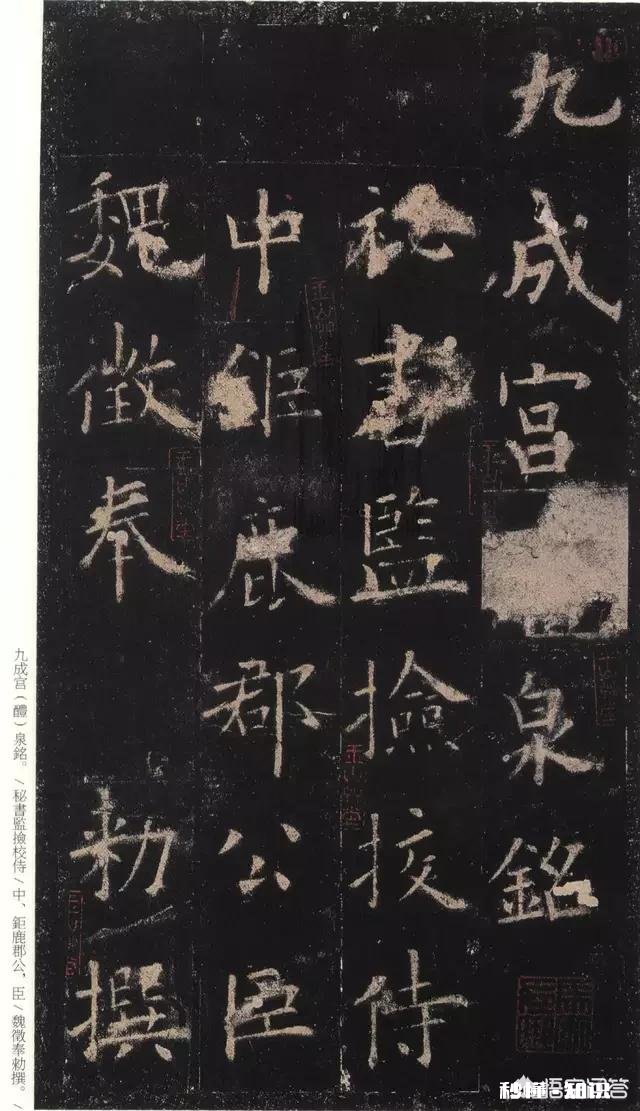 九成宫泉銘
秘書監撿挍侍
中鉅鹿郡公臣
魏徵奉勑撰
九成宫（醴）泉銘。/秘書監撿校侍/中、鉅鹿郡公，臣/魏徵奉勑撰。/
悟空问答
秒懂·知识